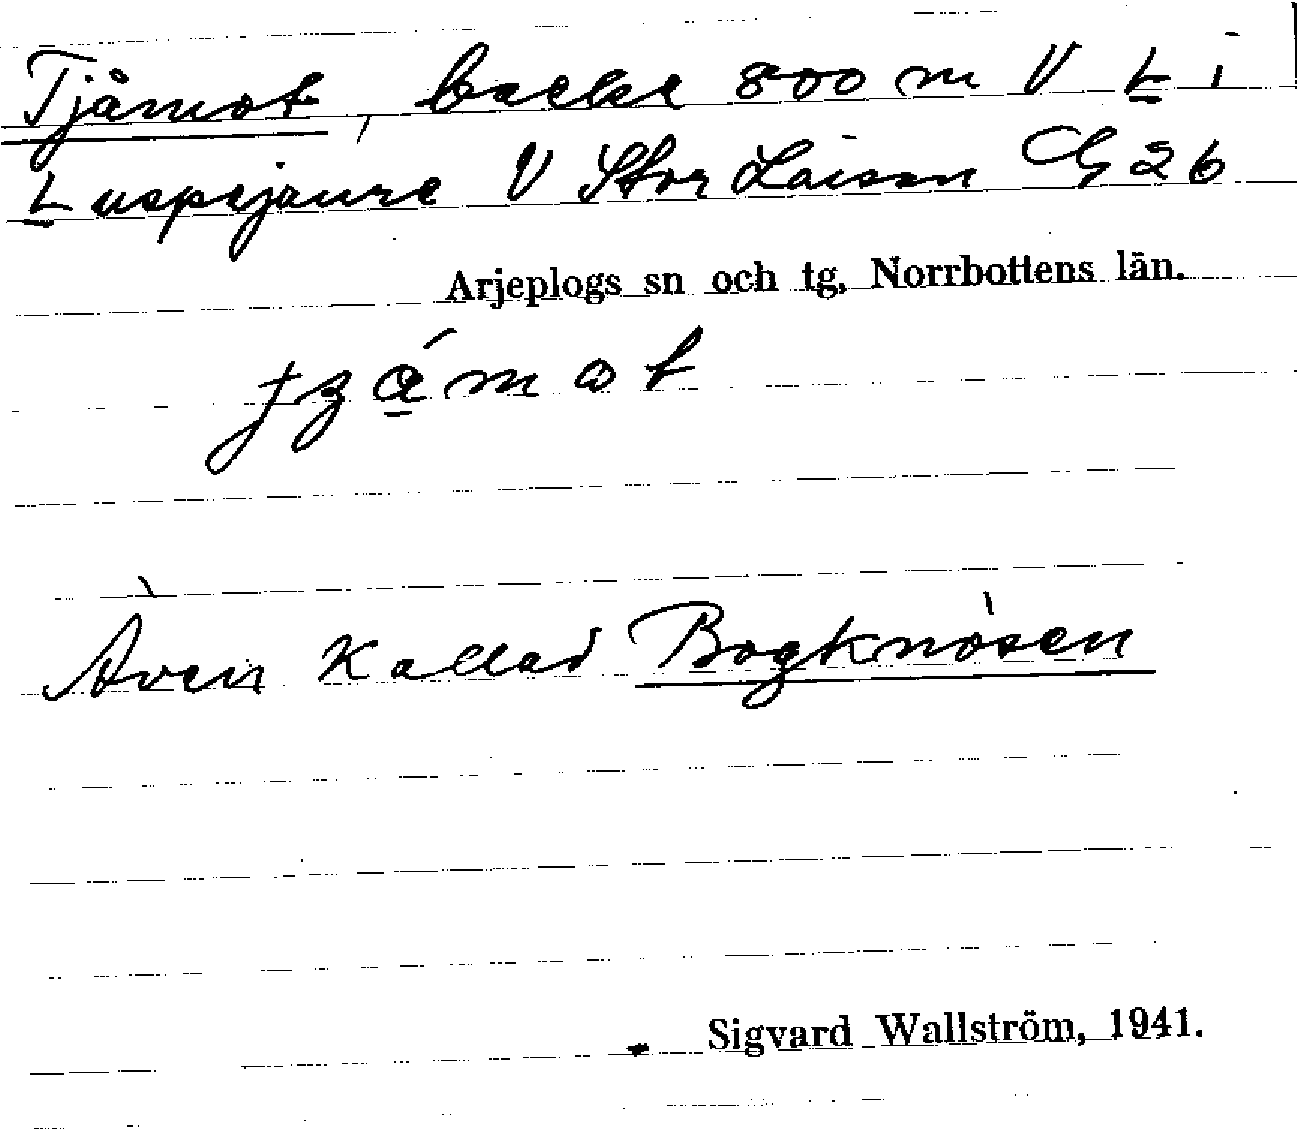 Tjåmot, backe 800 m V L i
Luspejaure V Stor Laisan G 2 b
Arjeplogs sn och tg, Norrbottens län.
Även kallad Bogknösen
Sigvard Wallström, 1941.